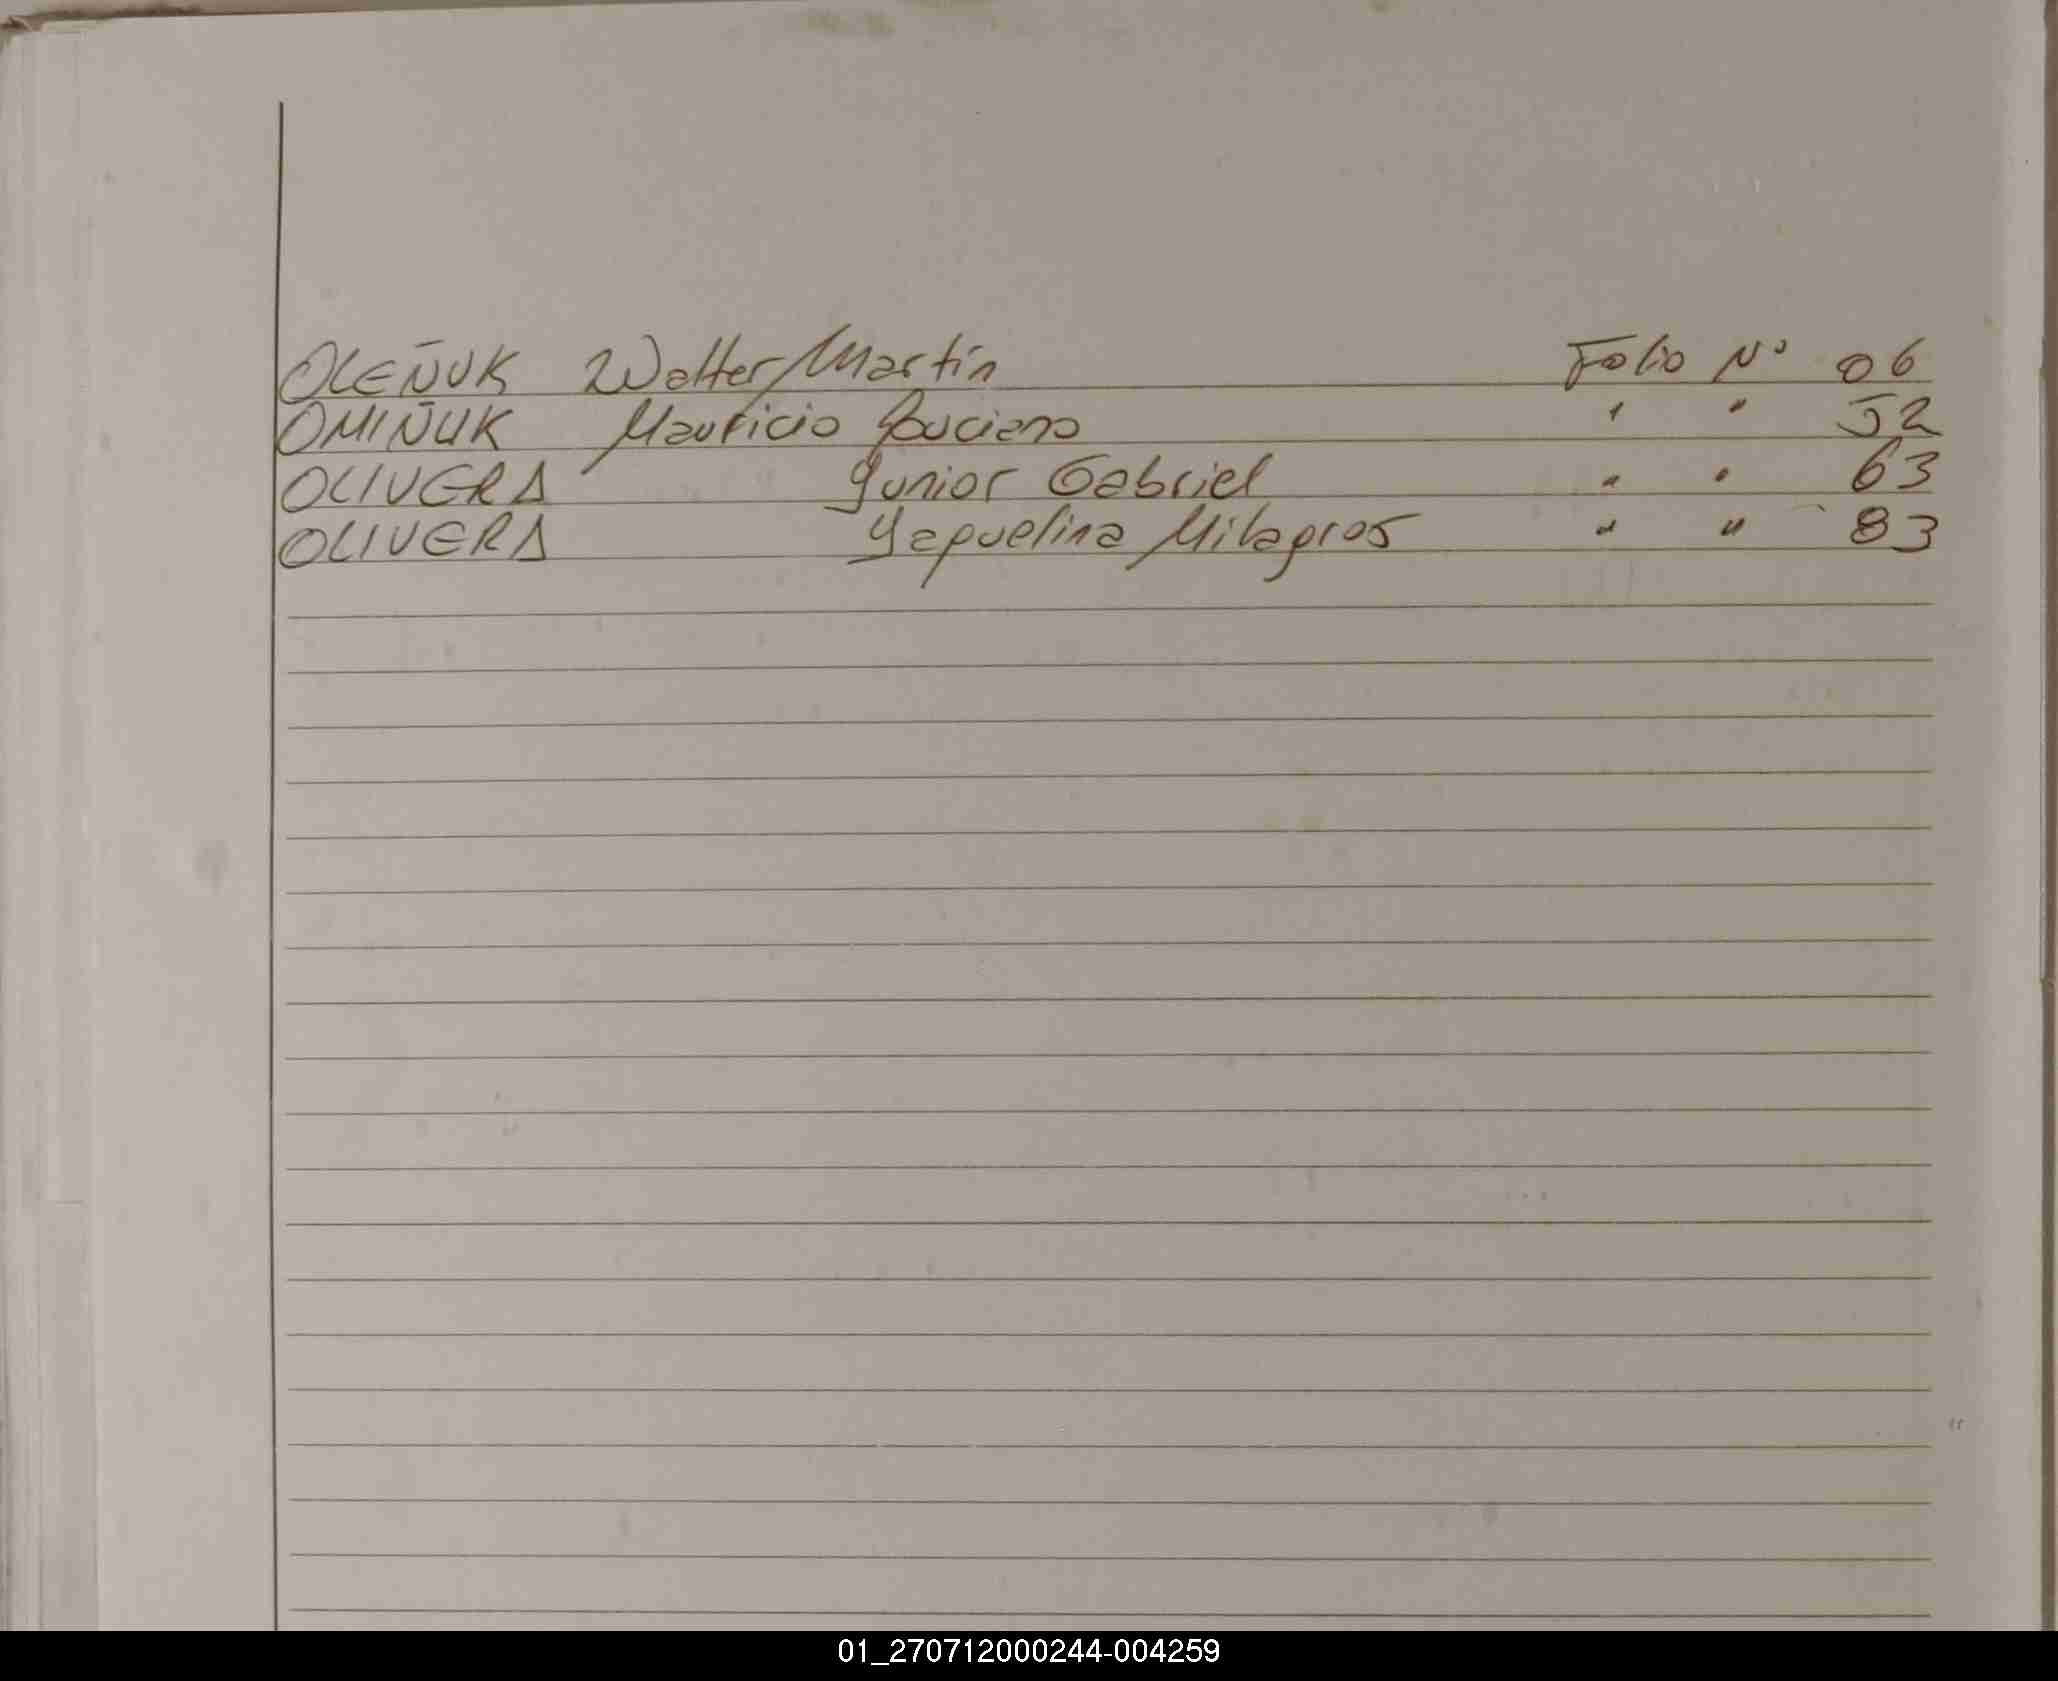 OLEÑUK Walter Martín Folio Nº 06
OMIÑUK Mauricio Luciano " " 52
OLIVERA Junior Gabriel " " 63
OLIVERA Yaquelina Milagros " " 83
01_270712000244-004259